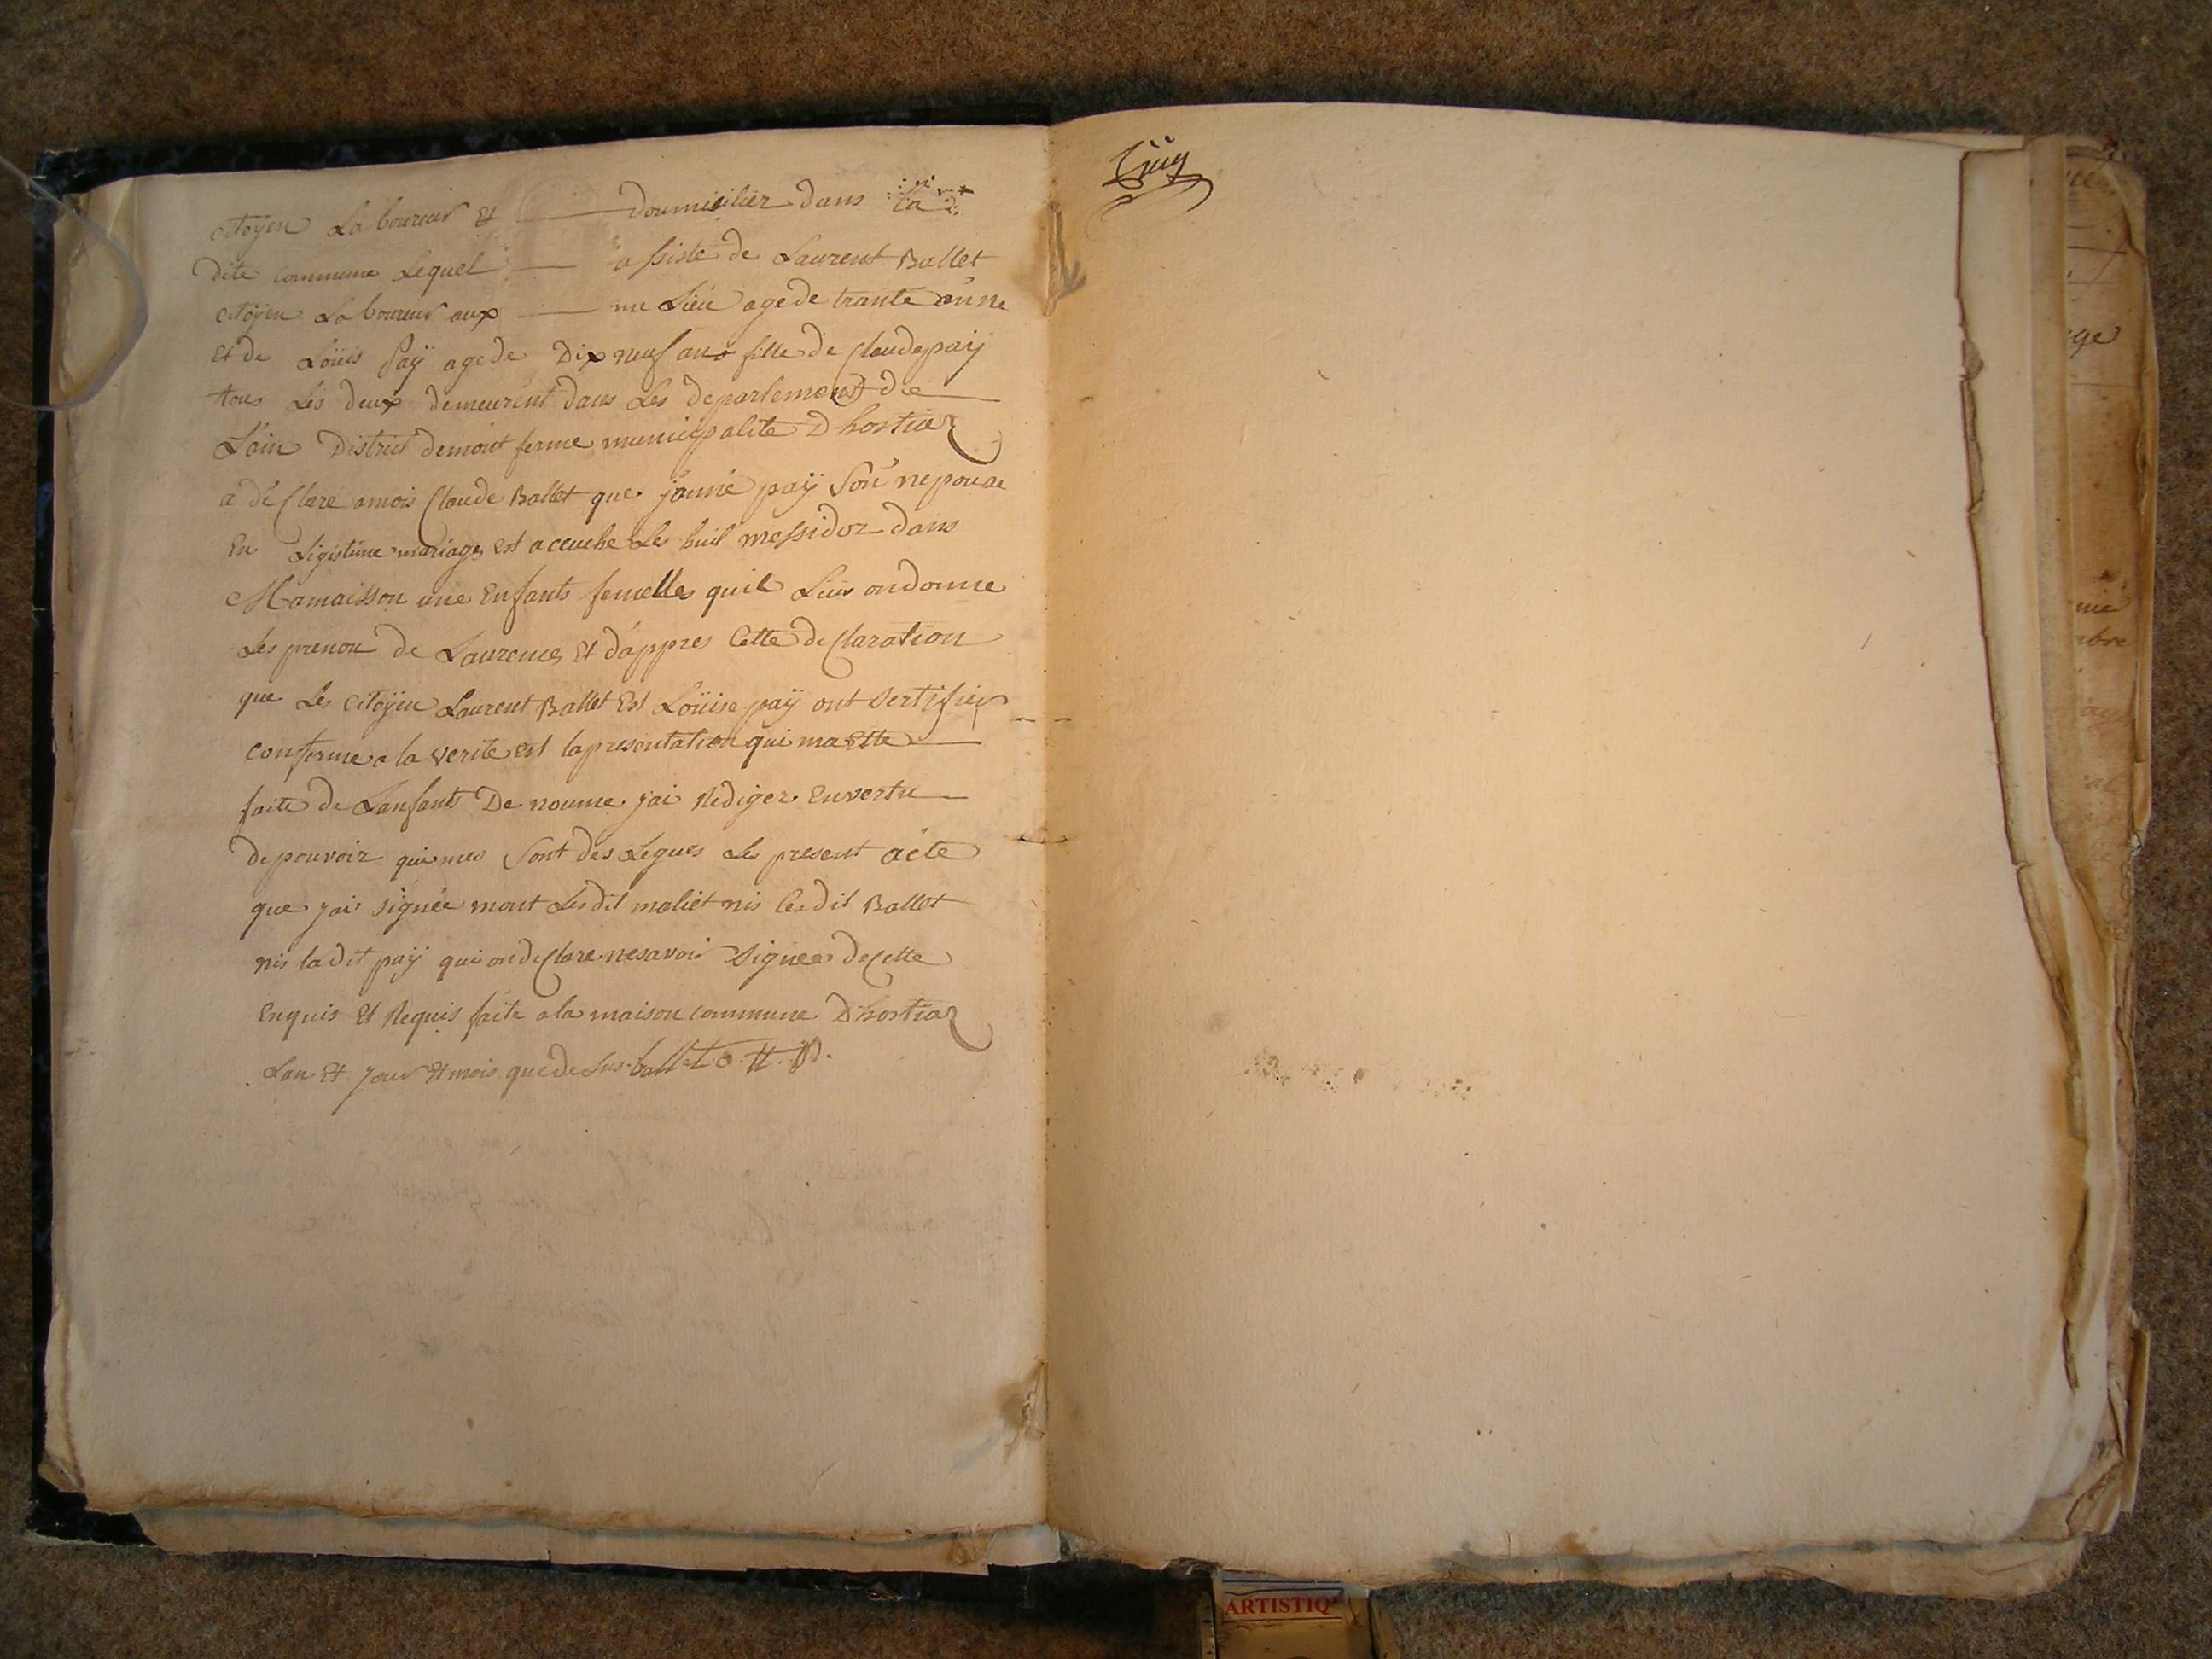 citoÿen Laboureur Et domicilier dans la
dite commune Lequel assiste de Laurent Ballet
citoÿen Laboureur aux me Lieu agede trante anne
Et de Loüis paÿ agede Dix neuf ans fille de Claude paÿ
tous Les deux demeurent dans Les departement de
L'ain District demont ferme municipalite D hostiaz
a dé Clare amois Claude Ballet que janne paÿ Son nepouae
En Ligistime mariage est accuche Le huit messidor dans
Mamaisson une Enfants femelle quil Luis ondonne
Les prenon de Laurence Et d'appres Cette de Claration
que Les citoÿen Laurent Ballet Est Loüise paÿ ont Sertifier
conforme a la verite est lapresentation qui ma Ette
faite de Lanfants De noume j'ai Rediger. Envertu
de pouvoir qui mes Sont des Legues Le present acte
que jai signée mont Les dit moliet nis les dit Ballet
nis la dit paÿ qui on de Clare nesavoir Signee de Cette
Enquis Et Requis faite a la maison commune D'hostiaz
Lan Et jour Et mois que de Sus ballet o. tt. p.
ge
nie
mbre
ARTISTIQ